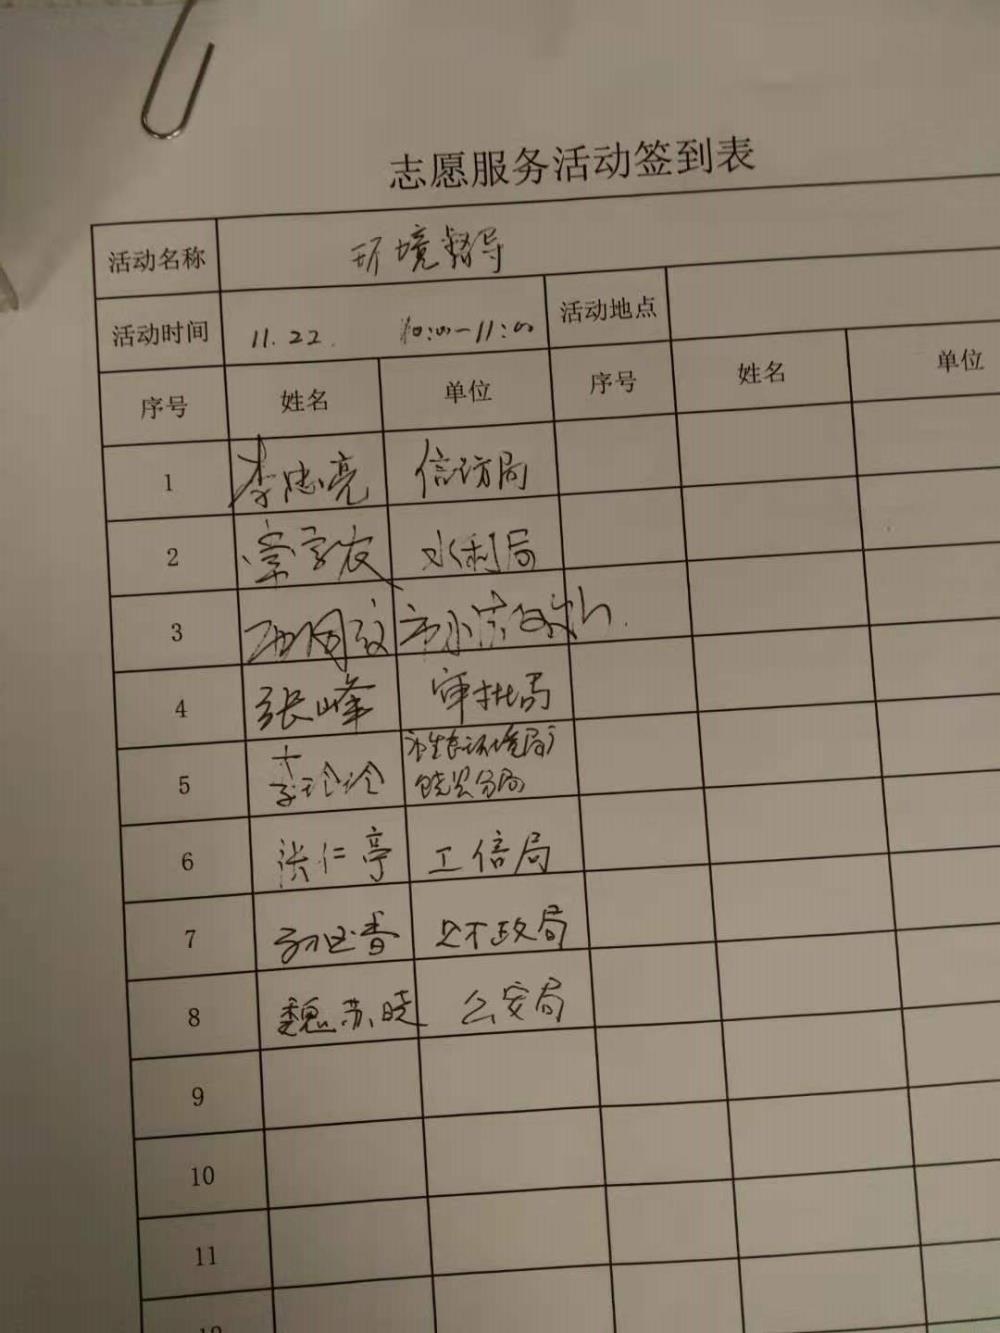 志愿服务活动签到表
活动名称 环境督导
活动时间 11.22. 10:00-11:00 活动地点
序号 姓名 单位 序号 姓名 单位
1 李忠亮 信访局
2 水利局
3
4 张峰 审批局
5 李玲玲 市生态环境局
分局
6 张仁亭 工信局
7 财政局
8 魏苏晓 公安局
9
10
11